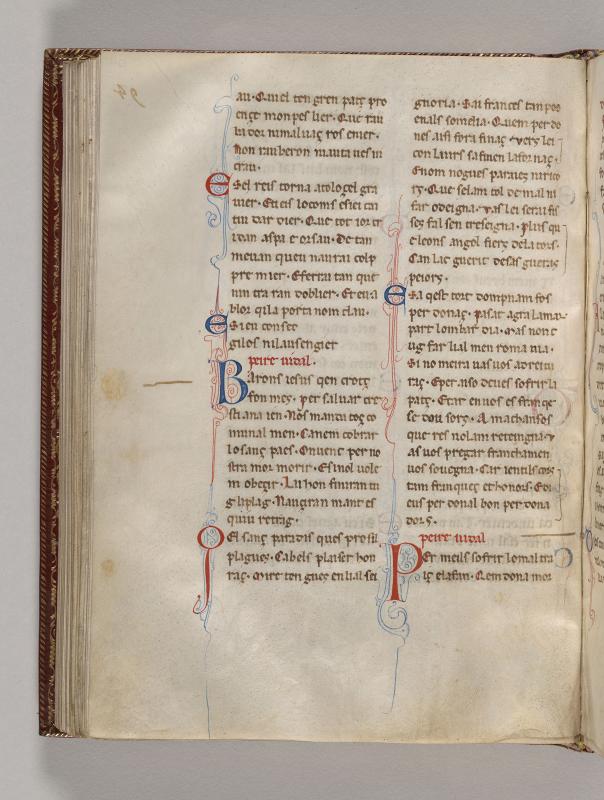 au. Quiel ten gren paiç pro
ençe monpes lier. Que rau
ba dor nimal uaç ros enier.
Non rauberon mauta ues m
crau.
E Sel reis torna atoloçel gra
uier.
tin dar dier. Que tot ior cr
idan aspa e orsan. De tan
me uan queu naurai colp
pre mier. E ferrai tan que
uin era ran doblier. Et en a
blor qi la porta nom clau.
E Sieu consec
gilos ni lausengier
peire uidal.
Barons iesus qen croç
fon mes. per saluar cre
stiana ien. Nos manda toç co
munal men. Canem cobrar
lo sanç paes. On uenc per no
stra mor morir. E si nol uole
m obeçir. Lai hon finiran tu
g li plag. Nauçiran mant es
quiu retrag.
O El sanç paradis ques pro sil
plagues. Cabels plaiser hon
raç. oire ten gues en lial sei
gnoria. Sai frances tan poo
enals somelia. Quem per do
nes aisi fora finaç e uers lei
con laurs safinen la fornaç.
Enom nogues paraieç ni ric
iç. Que selam tol de mal ui
far odeigna. Vas lei serai fis
seç fal sen treseigna. Plus qu
e leons angel fiers de la tors.
Can lac guerit de sas gueras
peiors.
E Sa qest tort dompnam fos
per donaç. pasat agra lamar
part lombar dia. Mas non c
ug far lial men roma uia.
Si no meira uas uos adreitu
raç. Eper aiso deues sofrir la
patç. Etar en uos es franqe
se dou sors. A ma chansos
que res nolam reteingna. v
as uos pregar franchamen
uos souegna. Car ientils cors
tam franqueç et honors. E de
eus per donal bon per dona
dors.
peire uidal
Per meils sofrir lo mal tra
iç elafan. Qem dona mor